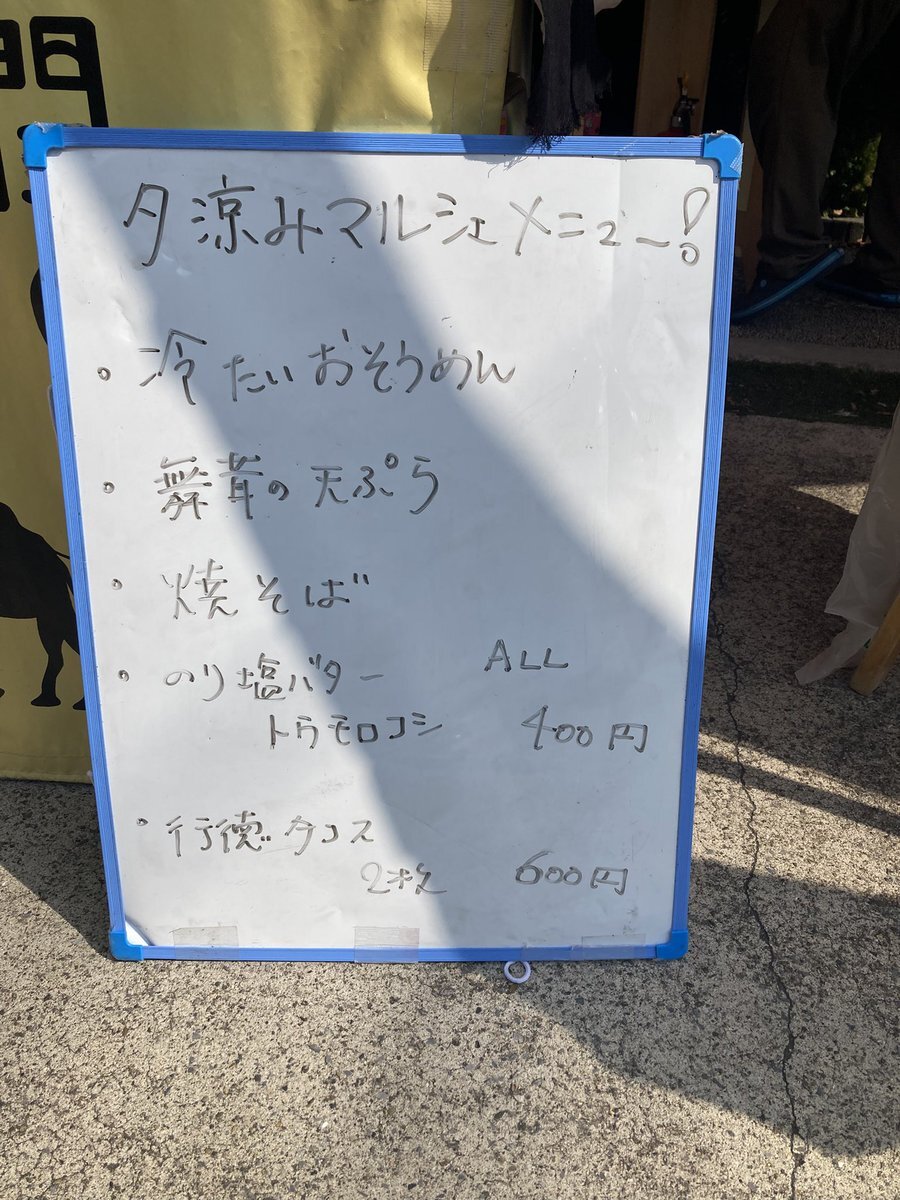 夕涼みマルシェメニュー!
・冷たいおそうめん
・舞茸の天ぷら
・焼そば
・のり塩バター
トウモロコシ
ALL
400円
・行徳タコス
2枚 600円